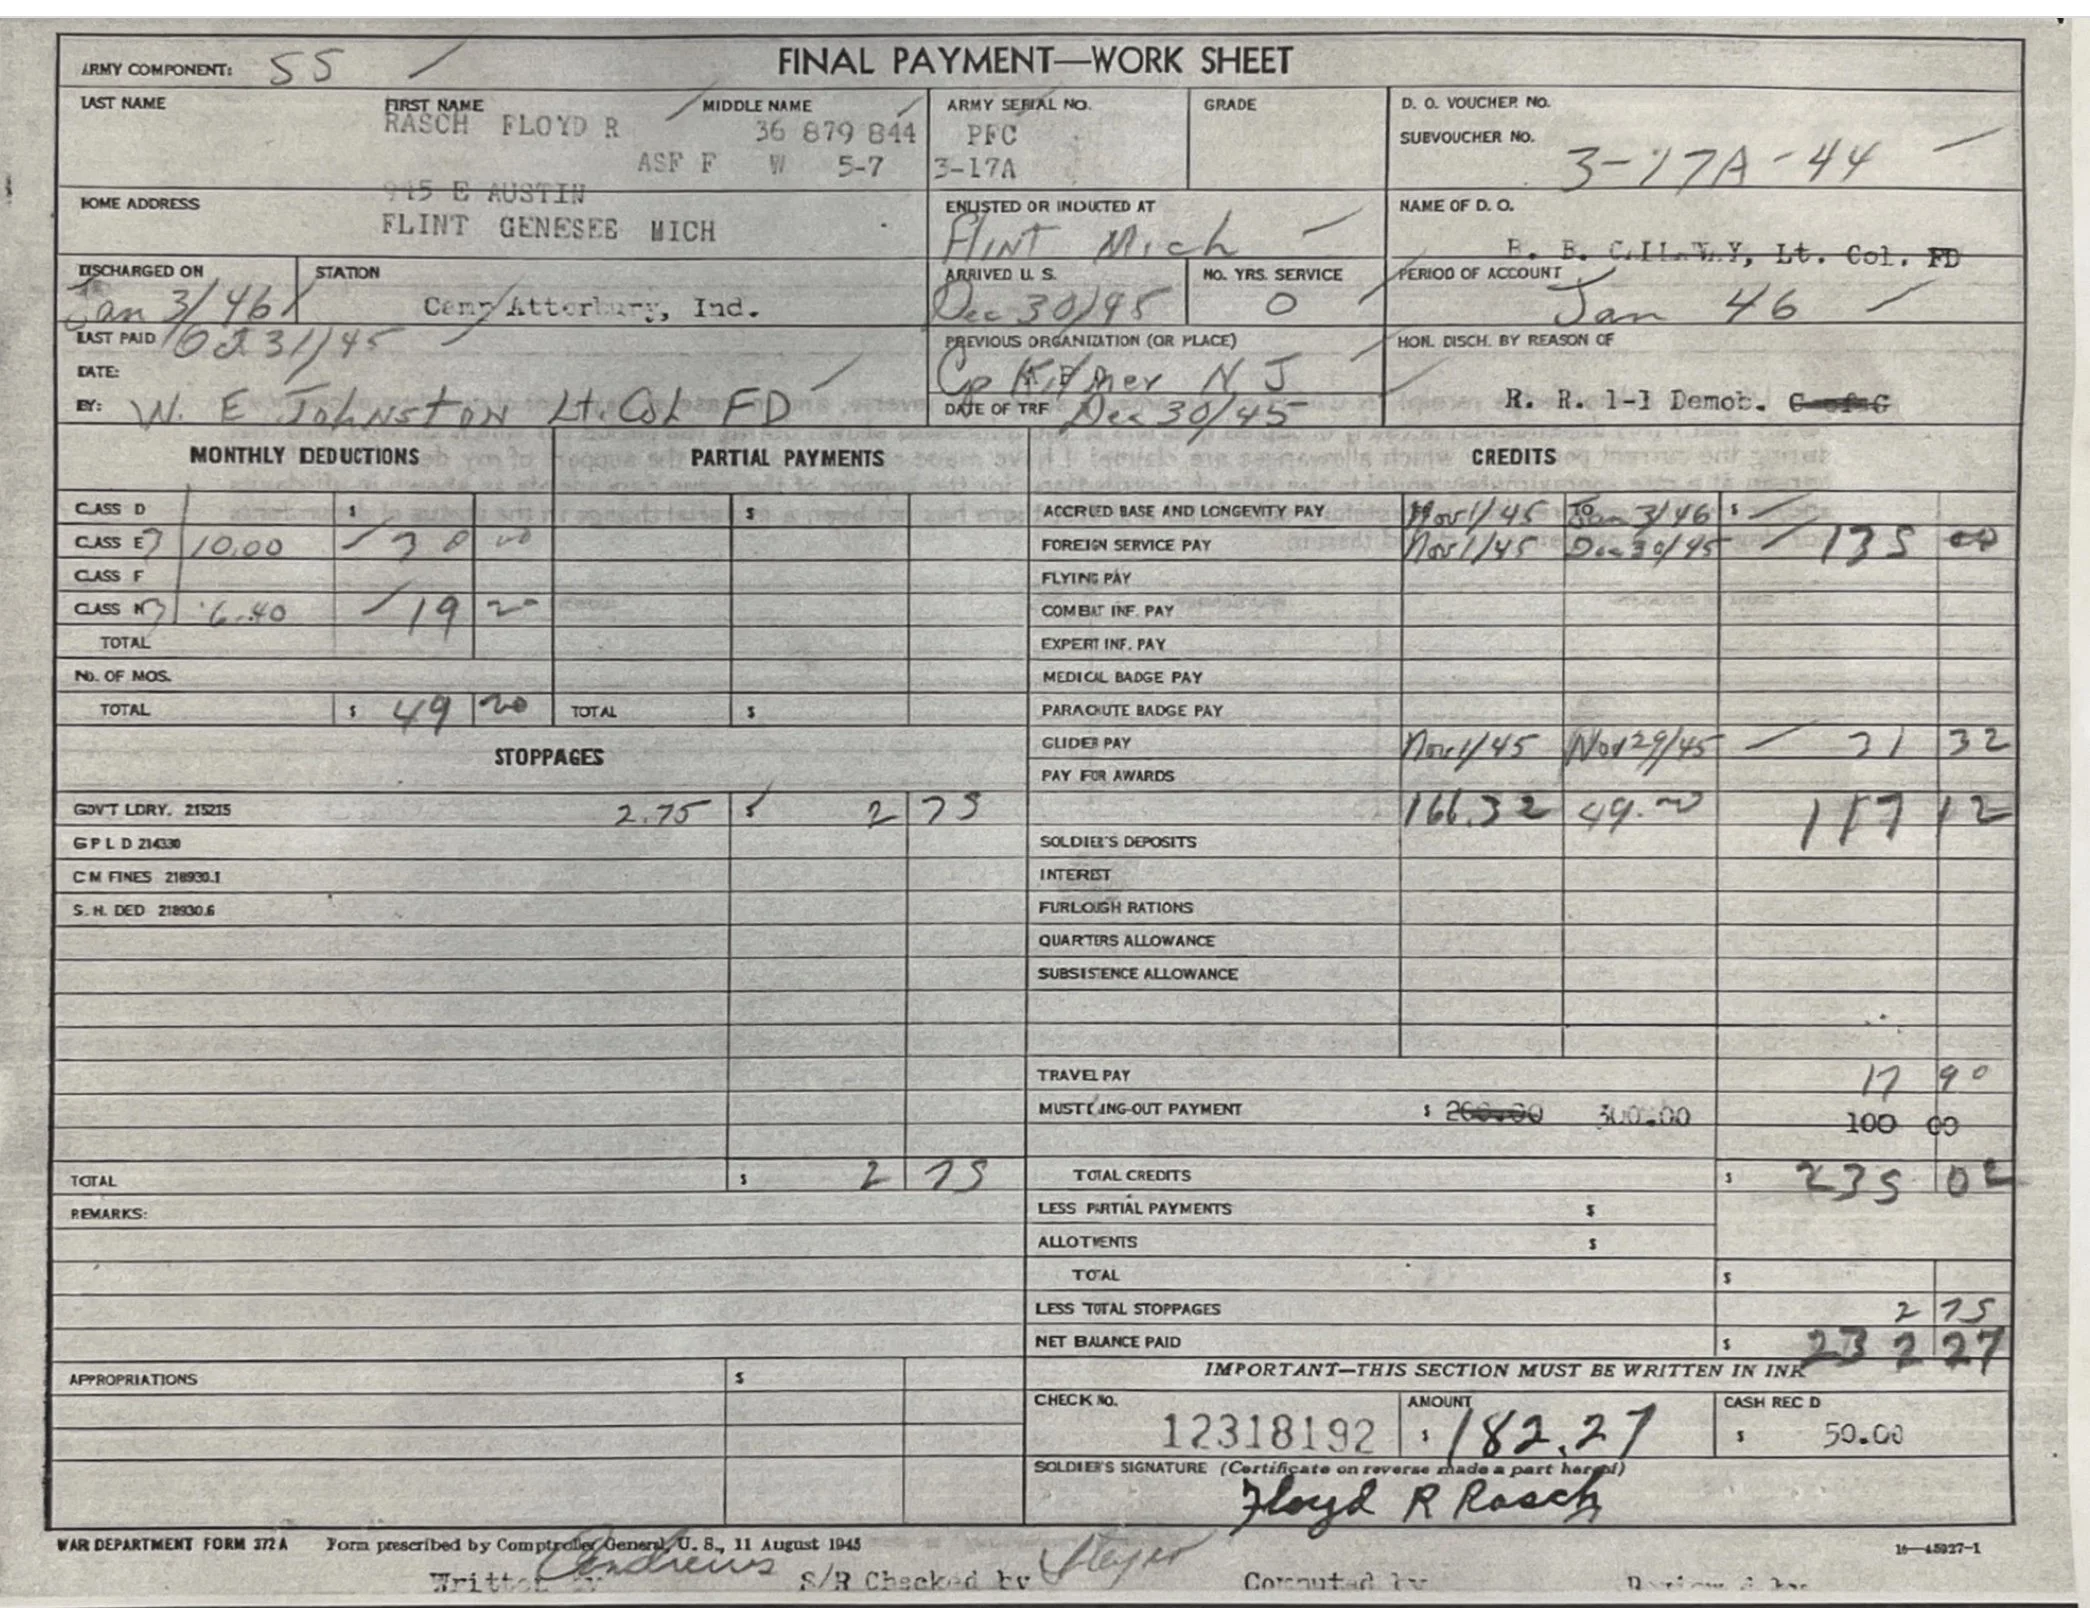 ARMY COMPONENT: SS
FINAL PAYMENT—WORK SHEET
LAST NAME FIRST NAME MIDDLE NAME
RASCH FLOYD R 36 879 844
ASF F W 5-7
ARMY SERIAL NO.
PFC
3-17A
GRADE
D. O. VOUCHER NO.
SUBVOUCHER NO.
3-17A-44
HOME ADDRESS
945 E AUSTIN
FLINT GENESEE MICH
ENLISTED OR INDUCTED AT
Flint Mich
NAME OF D. O.
Lt. Col. FD
DISCHARGED ON
Jan 3/46
STATION
Camp Atterbury, Ind.
ARRIVED U. S.
Dec 30/45
NO. YRS. SERVICE
0
PERIOD OF ACCOUNT
Jan 46
LAST PAID Oct 31/45
DATE:
BY: W. E Johnston Lt. Col FD
PREVIOUS ORGANIZATION (OR PLACE)
Cp Kilmer N J
DATE OF TRF Dec 30/45
HON. DISCH. BY REASON OF
R. R. 1-1 Demob. C of G
MONTHLY DEDUCTIONS
CLASS D $
CLASS E 3 10.00 30 00
CLASS F
CLASS N 3 6.40 19 20
TOTAL
NO. OF MOS.
TOTAL $ 49 20
PARTIAL PAYMENTS
$
TOTAL $
STOPPAGES
GOV'T LDRY. 215215 2.75 $ 2 75
G P L D 214330
C M FINES 218930.1
S. H. DED 218930.6
TOTAL $ 2 75
REMARKS:
APPROPRIATIONS $
CREDITS
ACCRUED BASE AND LONGEVITY PAY Nov 1/45 TO Jan 3/46 $
FOREIGN SERVICE PAY Nov 1/45 Dec 30/45 135 00
FLYING PAY
COMBAT INF. PAY
EXPERT INF. PAY
MEDICAL BADGE PAY
PARACHUTE BADGE PAY
GLIDER PAY Nov 1/45 Nov 29/45 31 32
PAY FOR AWARDS
166.32 49.20 117 12
SOLDIER'S DEPOSITS
INTEREST
FURLOUGH RATIONS
QUARTERS ALLOWANCE
SUBSISTENCE ALLOWANCE
TRAVEL PAY 17 90
MUSTERING-OUT PAYMENT $ 200.00 300.00 100 00
TOTAL CREDITS $ 235 02
LESS PARTIAL PAYMENTS $
ALLOTMENTS $
TOTAL $
LESS TOTAL STOPPAGES 2 75
NET BALANCE PAID $ 232 27
IMPORTANT—THIS SECTION MUST BE WRITTEN IN INK
CHECK NO.
12318192
AMOUNT
$ 182.27
CASH REC D
$ 50.00
SOLDIER'S SIGNATURE (Certificate on reverse made a part hereof)
Floyd R Rasch
WAR DEPARTMENT FORM 372A Form prescribed by Comptroller General, U. S., 11 August 1945
16—45927-1
Written by Andrews S/R Checked by Computed by